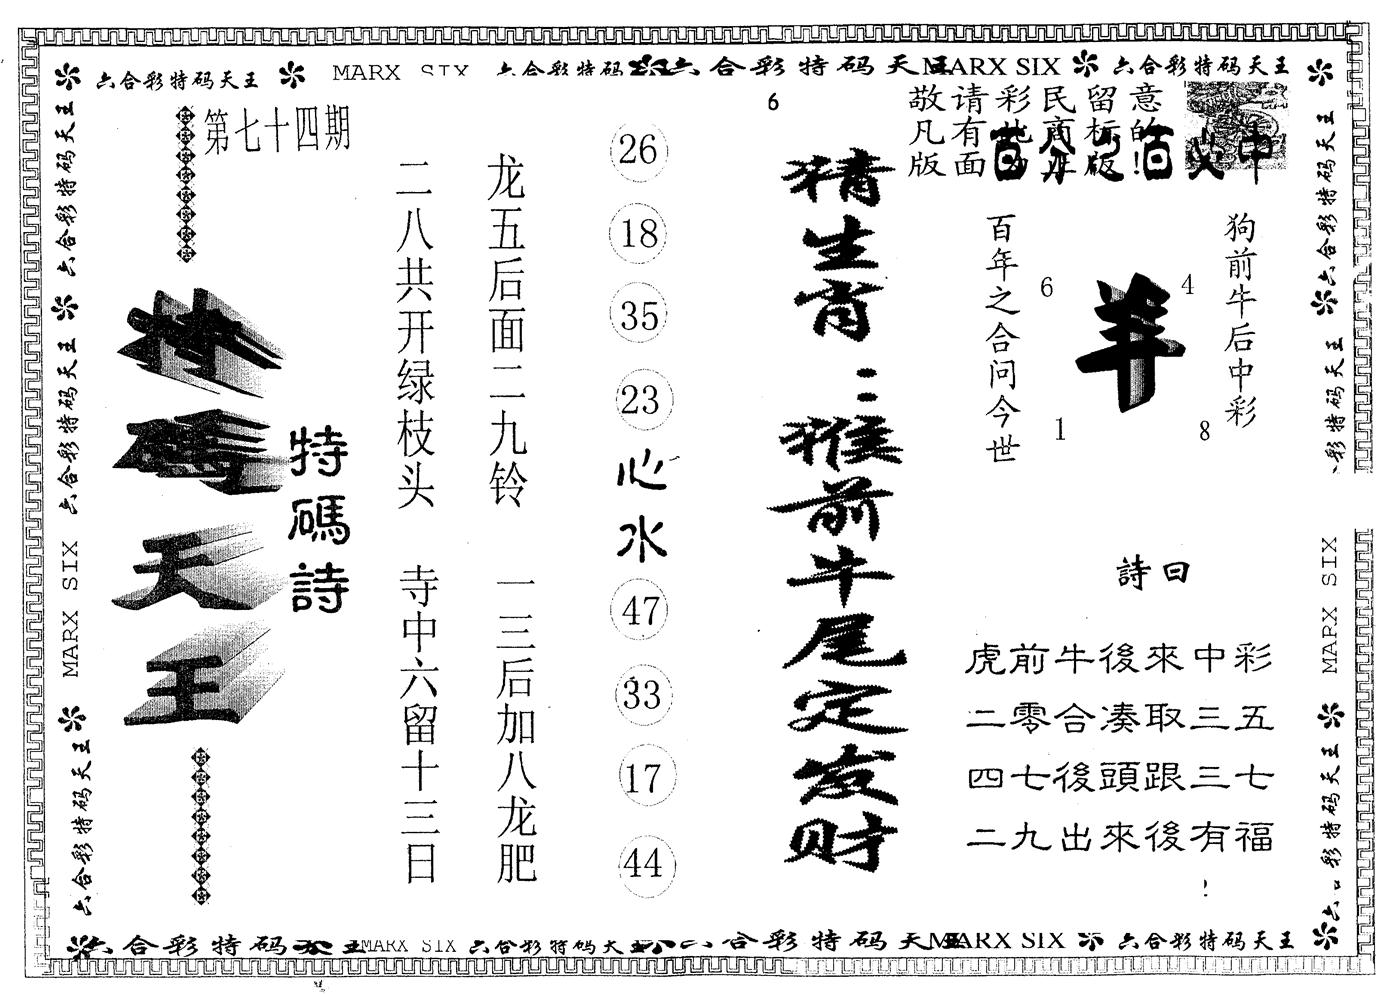 六合彩特码天王 MARX SIX 六合彩特码 六合彩特码天王 MARX SIX 六合彩特码天王
第七十四期
特碼天王
特碼詩
二八共开绿枝头 寺中六留十三日
龙五后面二九铃 一三后加八龙肥
26
18
35
23
心水
47
33
17
44
6
猜生肖：猴前牛尾定发财
敬请彩民留意
凡有
版面 版!
百必中
百年之合问今世
6
4
羊
1
8
狗前牛后中彩
詩曰
虎前牛後來中彩
二零合凑取三五
四七後頭跟三七
二九出來後有福
!
六合彩特码天王
六合彩特码天王
六合彩特码天王
MARX SIX
六合彩特码天王
六合彩特码天王
彩特码天王
MARX SIX
六 彩特码天王
六合彩特码 王 MARX SIX 六合彩特码天王 六合彩特码天 MARX SIX 六合彩特码天王